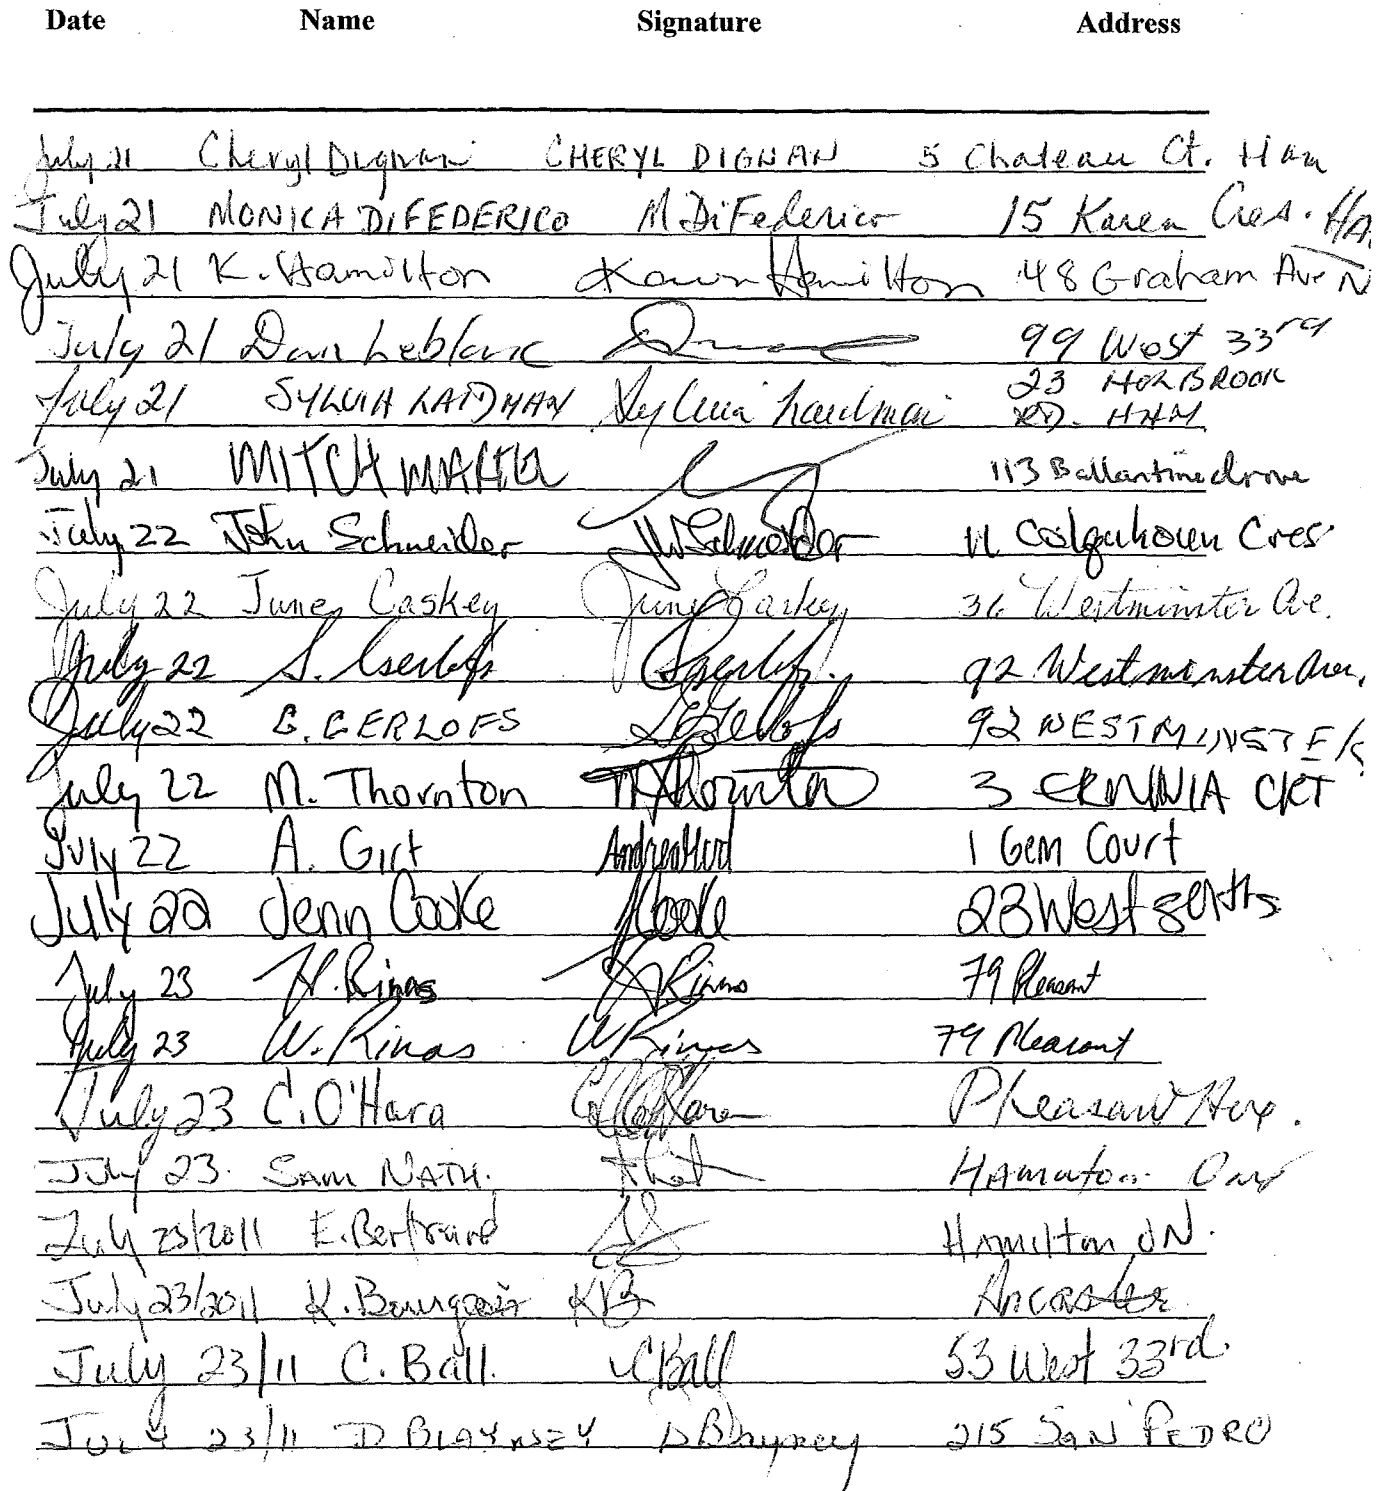 Date Name Signature Address
July 21 Cheryl Dignan CHERYL DIGNAN 5 Chateau Ct. Ham
July 21 MONICA DIFEDERICO M DiFederico 15 Karen Cres. HA.
July 21 K. Hamilton Karen Hamilton 48 Graham Ave N
July 21 Dan Leblanc 99 West 33rd
July 21 SYLVIA LAIDMAN Sylvia Laidman 23 HOLBROOK
RD. HAM
July 21 MITCH 113 Ballantine drove
July 22 John Schneider JW Schneider 11 Colquhoun Cres
July 22 June Caskey June Caskey 36 Westminster Ave.
July 22 S. 92 Westminster Ave.
July 22 G. GERLOFS Gerlofs 92 WESTMINSTER
July 22 M. Thornton M Thornton 3 ERMINIA CRT
July 22 A. Girt Andrea Girt 1 Gem Court
July 22 Jenn Cooke JCooke 23 West
July 23 H. Rinas H Rinas 79 Pleasant
July 23 W. Rinas W Rinas 79 Pleasant
July 23 C. O'Hara C O'Hara Pleasant Ave.
July 23. SAM NATH. Hamilton Ont
July 23/2011 E. Bertrand Hamilton, ON.
July 23/2011 K. Bourgeois KB Ancaster
July 23/11 C. Ball. CBall 53 West 33rd.
July 23/11 D BLAYNEY D Blayney 215 SAN PEDRO